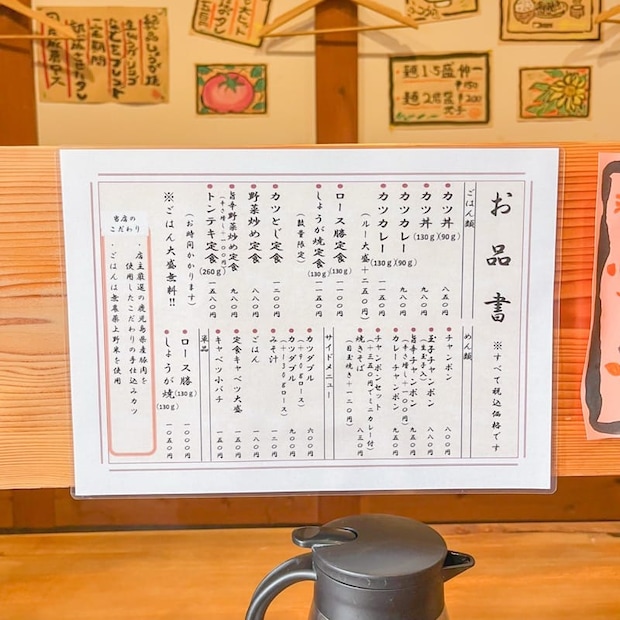 お品書
※すべて税込価格です
ごはん類
カツ丼(90g) 八五〇円
カツ丼(130g)
カツカレー(90g) 九八〇円
カツカレー(130g) 一一五〇円
(ルー大盛+二五〇円)
ロース勝定食(130g) 一一〇〇円
しょうが焼定食(130g) 一一五〇円
(数量限定)
カツとじ定食 九八〇円
野菜炒め定食 八八〇円
旨辛野菜炒め定食 九八〇円
(辛さ増し+一〇〇円)
トンテキ定食(260g) 一五八〇円
(お時間かかります)
※ごはん大盛無料!!
めん類
チャンポン 八〇〇円
玉子チャンポン 八八〇円
(生玉子入)
旨辛チャンポン 九五〇円
(辛さ増し+一〇〇円)
カレーチャンポン 九五〇円
チャンポンセット
(+三五〇円でミニカレー付)
焼きそば 八三〇円
(目玉焼き+一二〇円)
サイドメニュー
カツダブル 六〇〇円
(+90gロース)
カツダブル 九〇〇円
(+130gロース)
みそ汁 一二〇円
ごはん 一八〇円
定食キャベツ大盛 一五〇円
キャベツ小バチ 一五〇円
単品
ロース勝(130g) 一〇〇〇円
しょうが焼(130g) 一〇五〇円
当店の
こだわり
店主厳選の鹿児島県産豚肉を
使用したこだわりの手仕込みカツ
・ごはんは無農薬上野米を使用
麺1.5盛 +¥150
麺2盛 ¥200